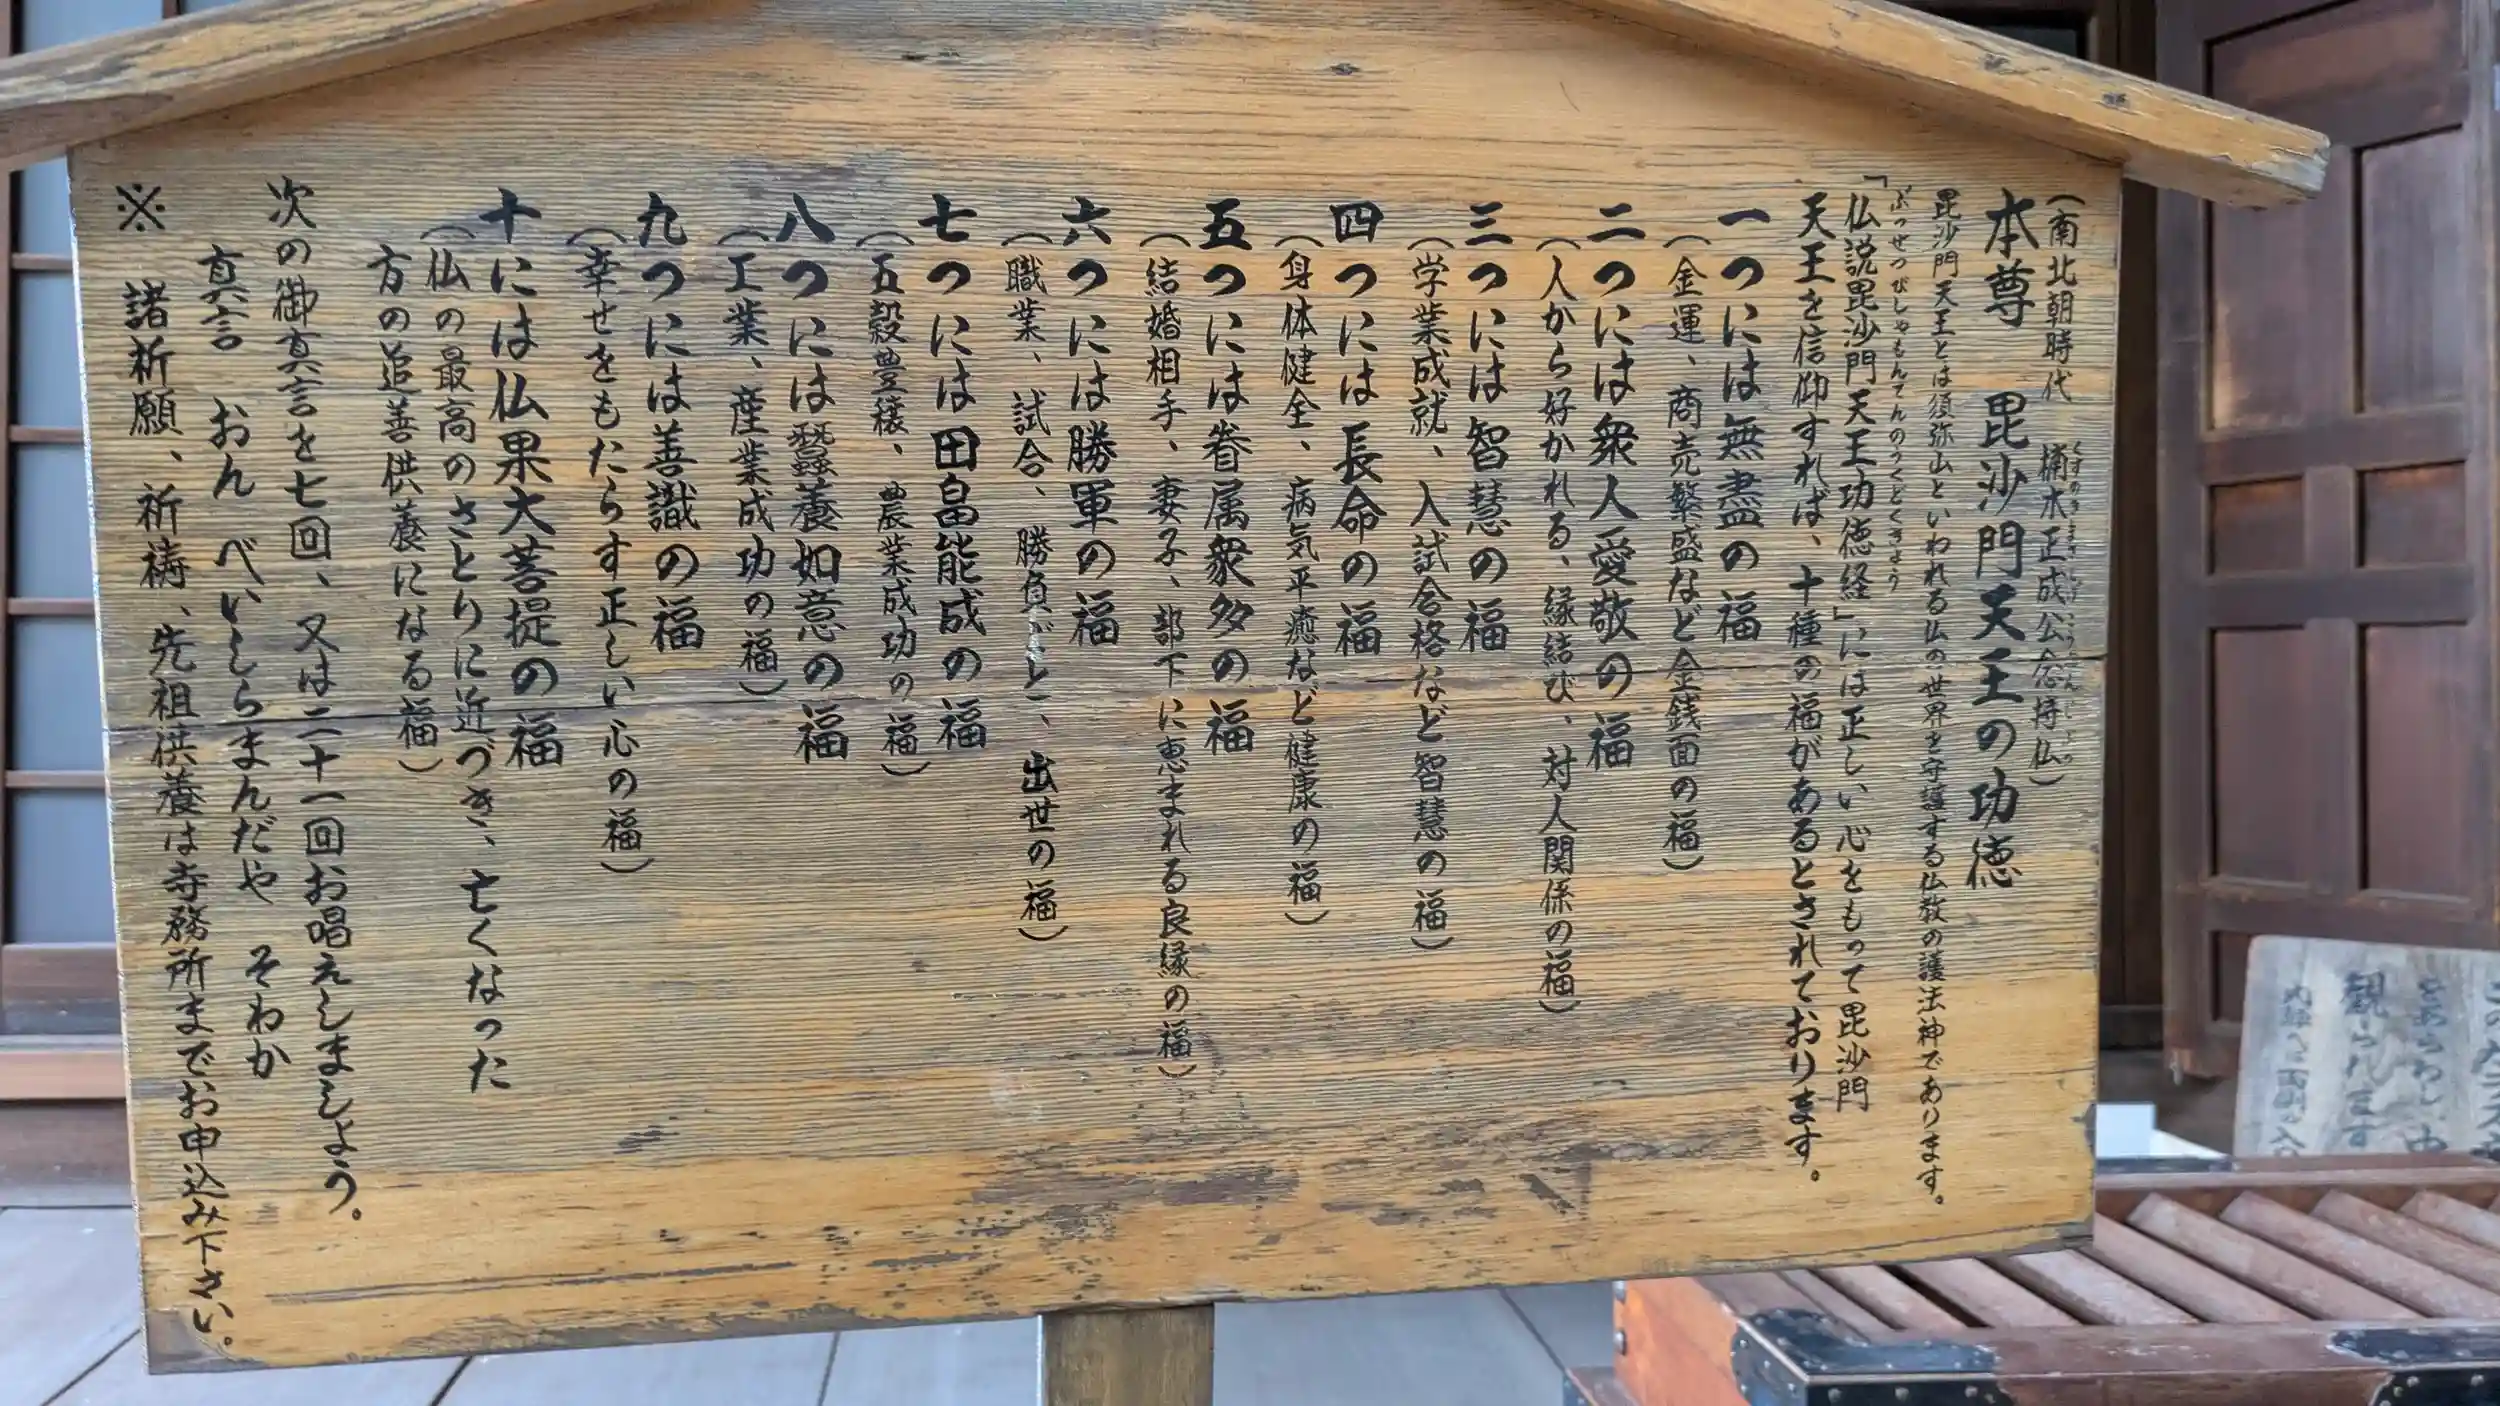 (南北朝時代 楠木正成公念持仏)
くすのきまさしげこうねんじぶつ
本尊 毘沙門天王の功徳
毘沙門天王とは須弥山といわれる仏の世界を守護する仏教の護法神であります。
ぶっせつびしゃもんてんのうくどくきょう
「仏説毘沙門天王功徳経」には正しい心をもって毘沙門
天王を信仰すれば、十種の福があるとされております。
一つには無盡の福
(金運、商売繁盛など金銭面の福)
二つには衆人愛敬の福
(人から好かれる、縁結び、対人関係の福)
三つには智慧の福
(学業成就、入試合格など智慧の福)
四つには長命の福
(身体健全、病気平癒など健康の福)
五つには眷属衆多の福
(結婚相手、妻子、部下に恵まれる良縁の福)
六つには勝軍の福
(職業、試合、勝負ごと、出世の福)
七つには田畠能成の福
(五穀豊穣、農業成功の福)
八つには蠶養如意の福
(工業、産業成功の福)
九つには善識の福
(幸せをもたらす正しい心の福)
十には仏果大菩提の福
(仏の最高のさとりに近づき、亡くなった
方の追善供養になる福)
次の御真言を七回、又は二十一回お唱えしましょう。
真言 おん べいしらまんだや そわか
※ 諸祈願、祈祷、先祖供養は寺務所までお申込み下さい。
をあらわし、中
観られます